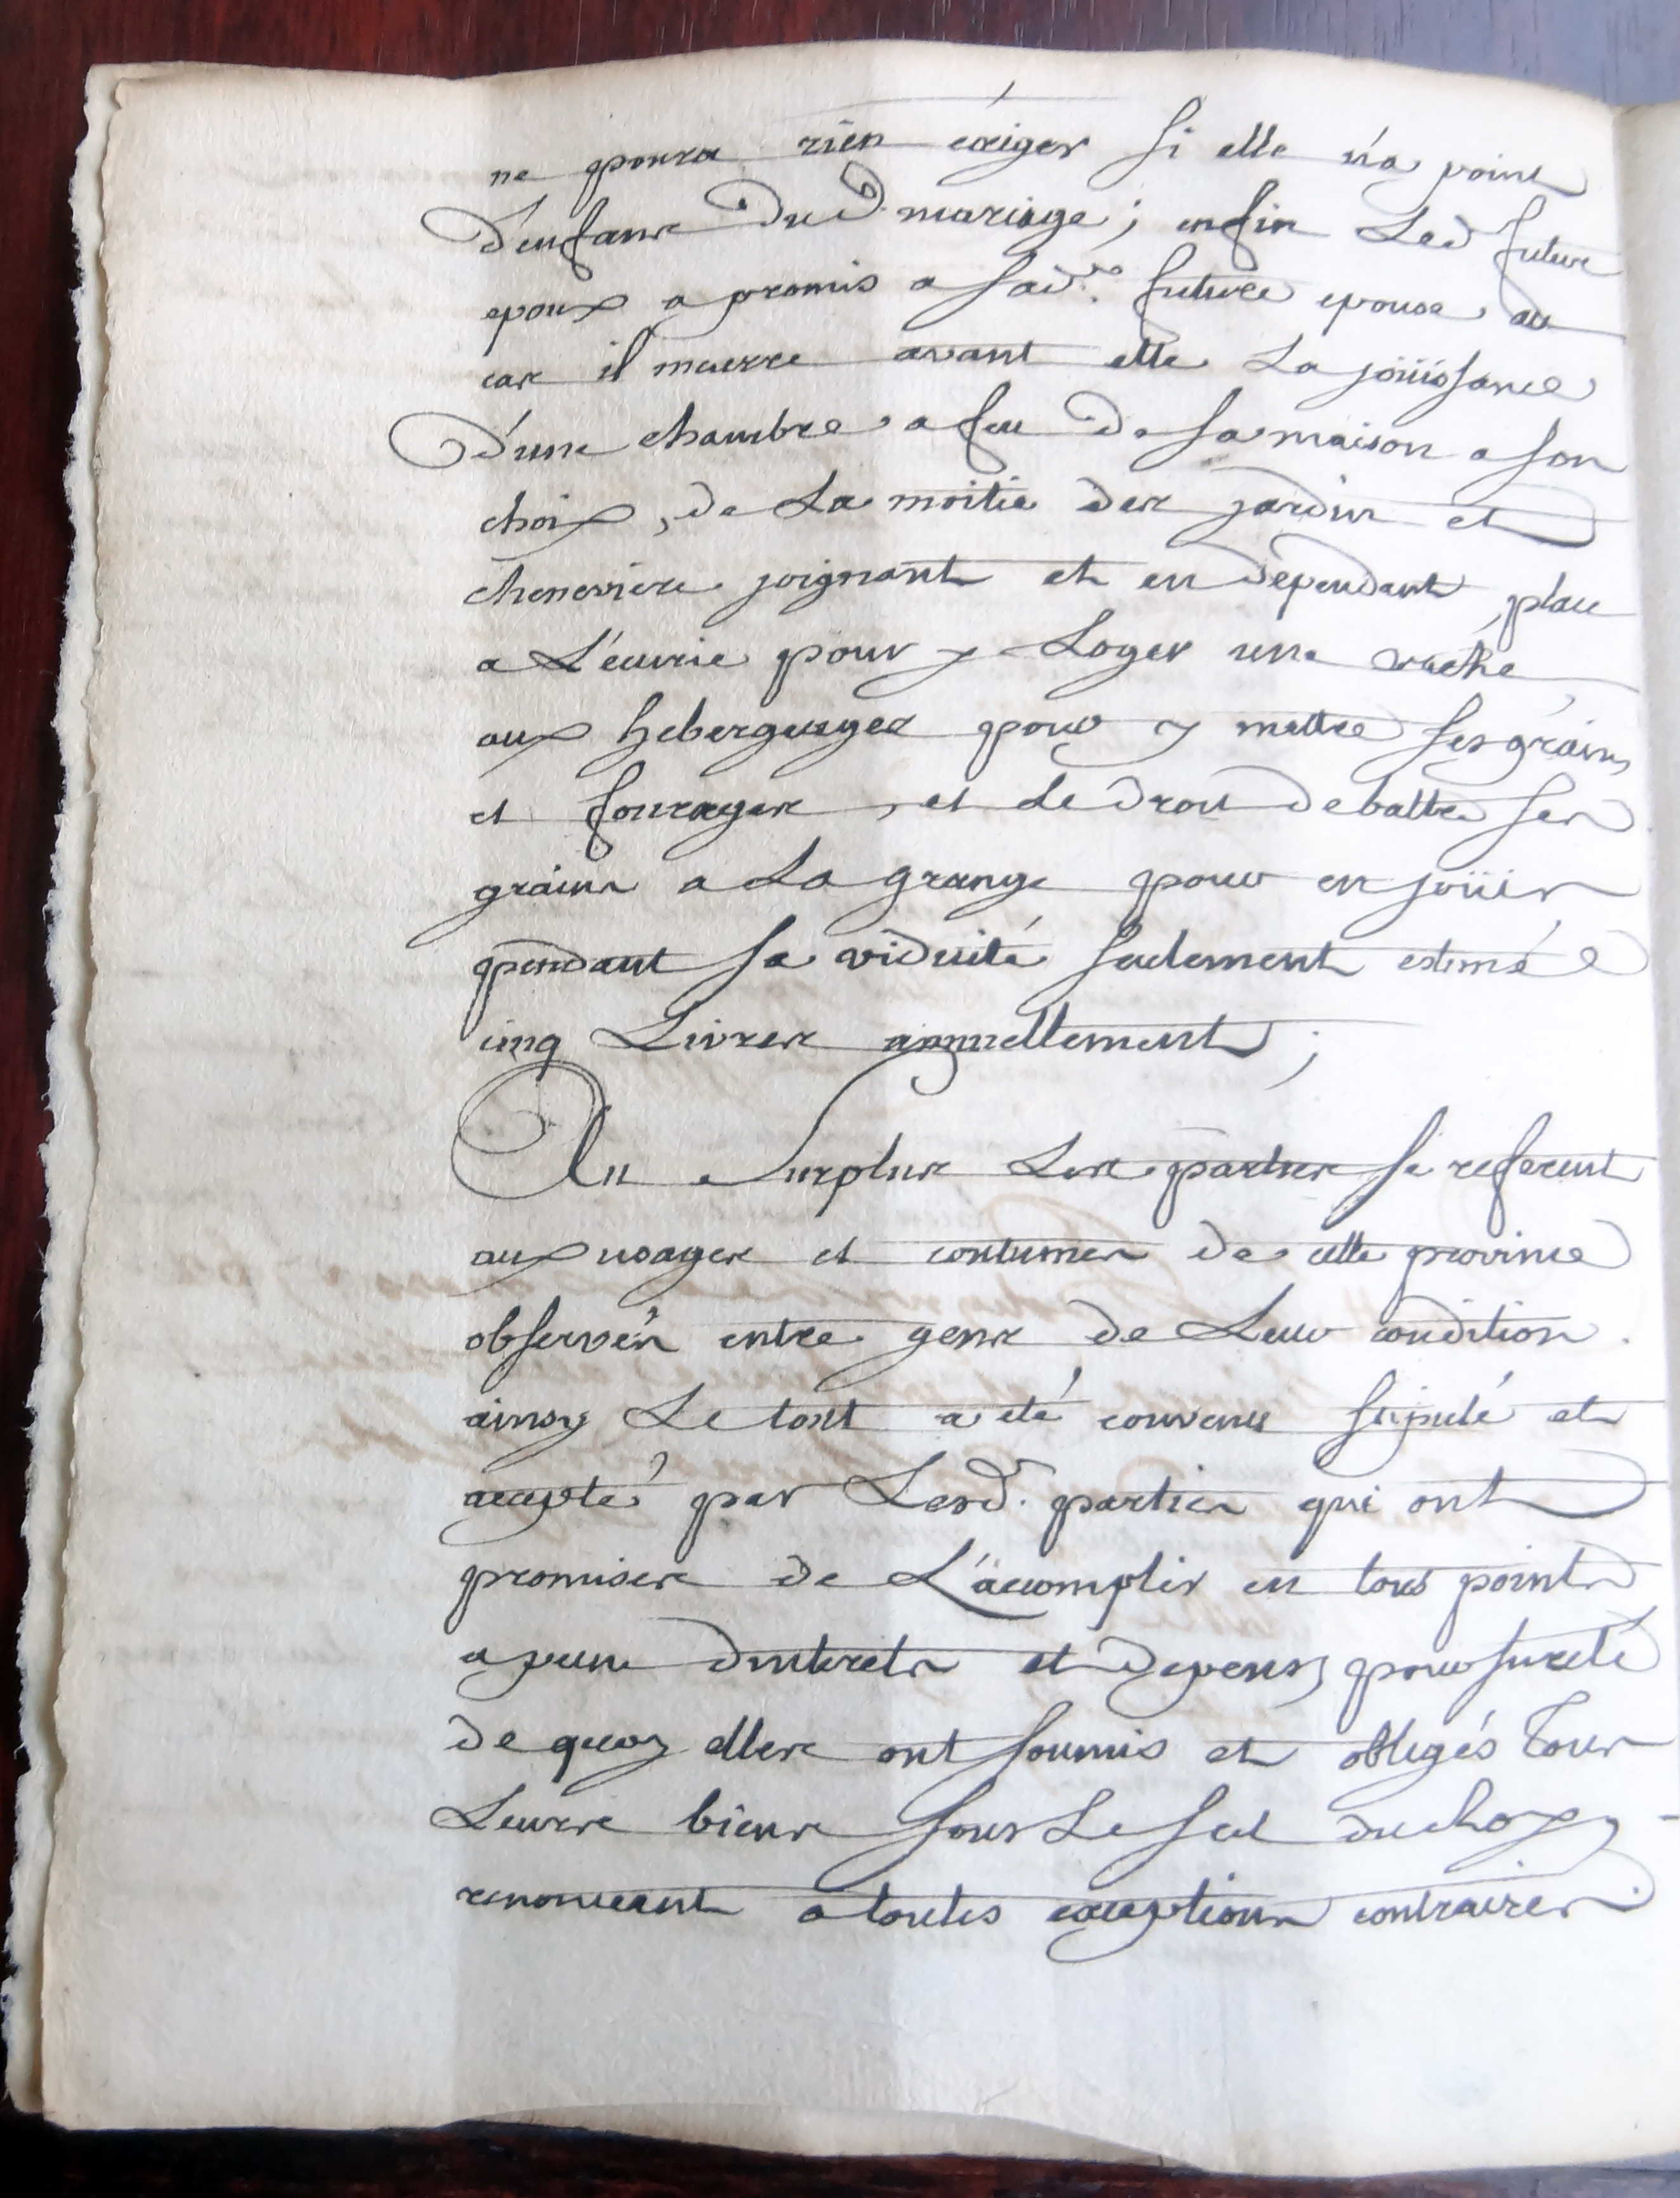 ne poura rien exiger si elle n'a point
d'enfans dud. mariage ; enfin Led futur
epoux a promis a sad.te future epouse au
cas il meurre avant elle La joüissance
d'une chambre a feu de sa maison a son
choix, de La moitié des jardins et
cheneviere joignant et en dépendant, place
a L'écurie pour y Loger une vache
aux hebergeages pour y mettre ses grains
et fourages, et le droit de battre ses
grains a La grange pour en joüir
pendant sa viduité seulement estimé
cinq Livres annuellement ;
Au Surplus Les parties se referent
aux usages et coutumes de cette province
observés entre gens de Leur condition.
ainsy Le tout a été convenu stipulé et
accepté par Lesd. parties qui ont
promises de L'accomplir en tous points
a peine d'interets et depens, pour sureté
de quoy elles ont soumis et obligés tous
Leurs biens sous Le scel
renonceant a toutes exceptions contraires.